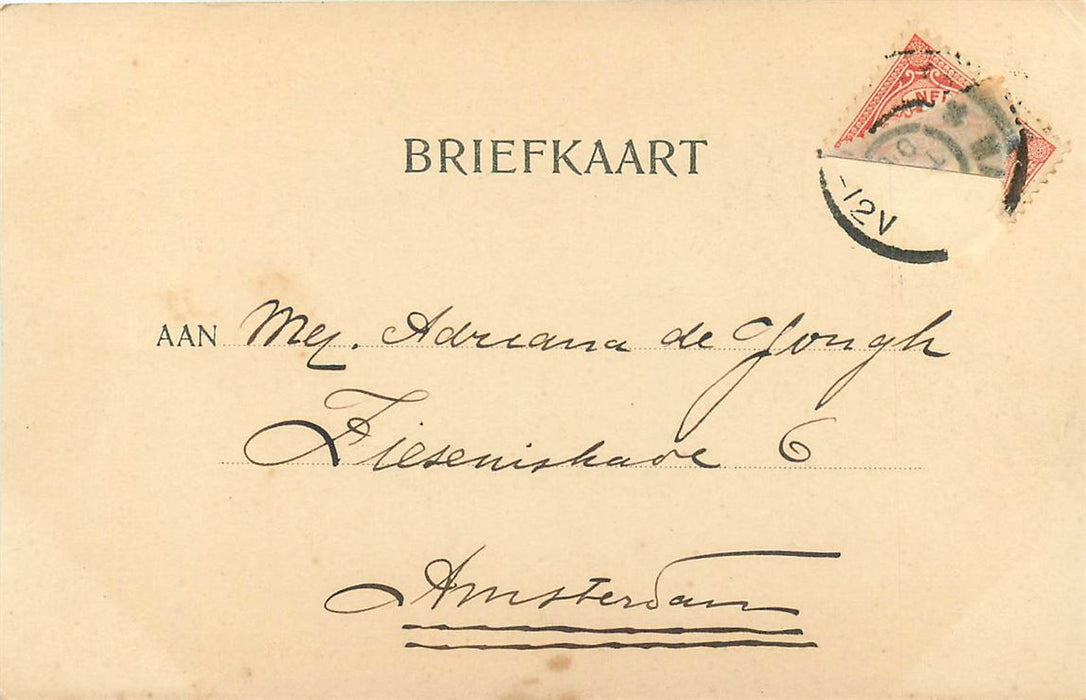 BRIEFKAART
-12V
AAN Mej. Adriana de Jongh
Fieseniskade 6
Amsterdam